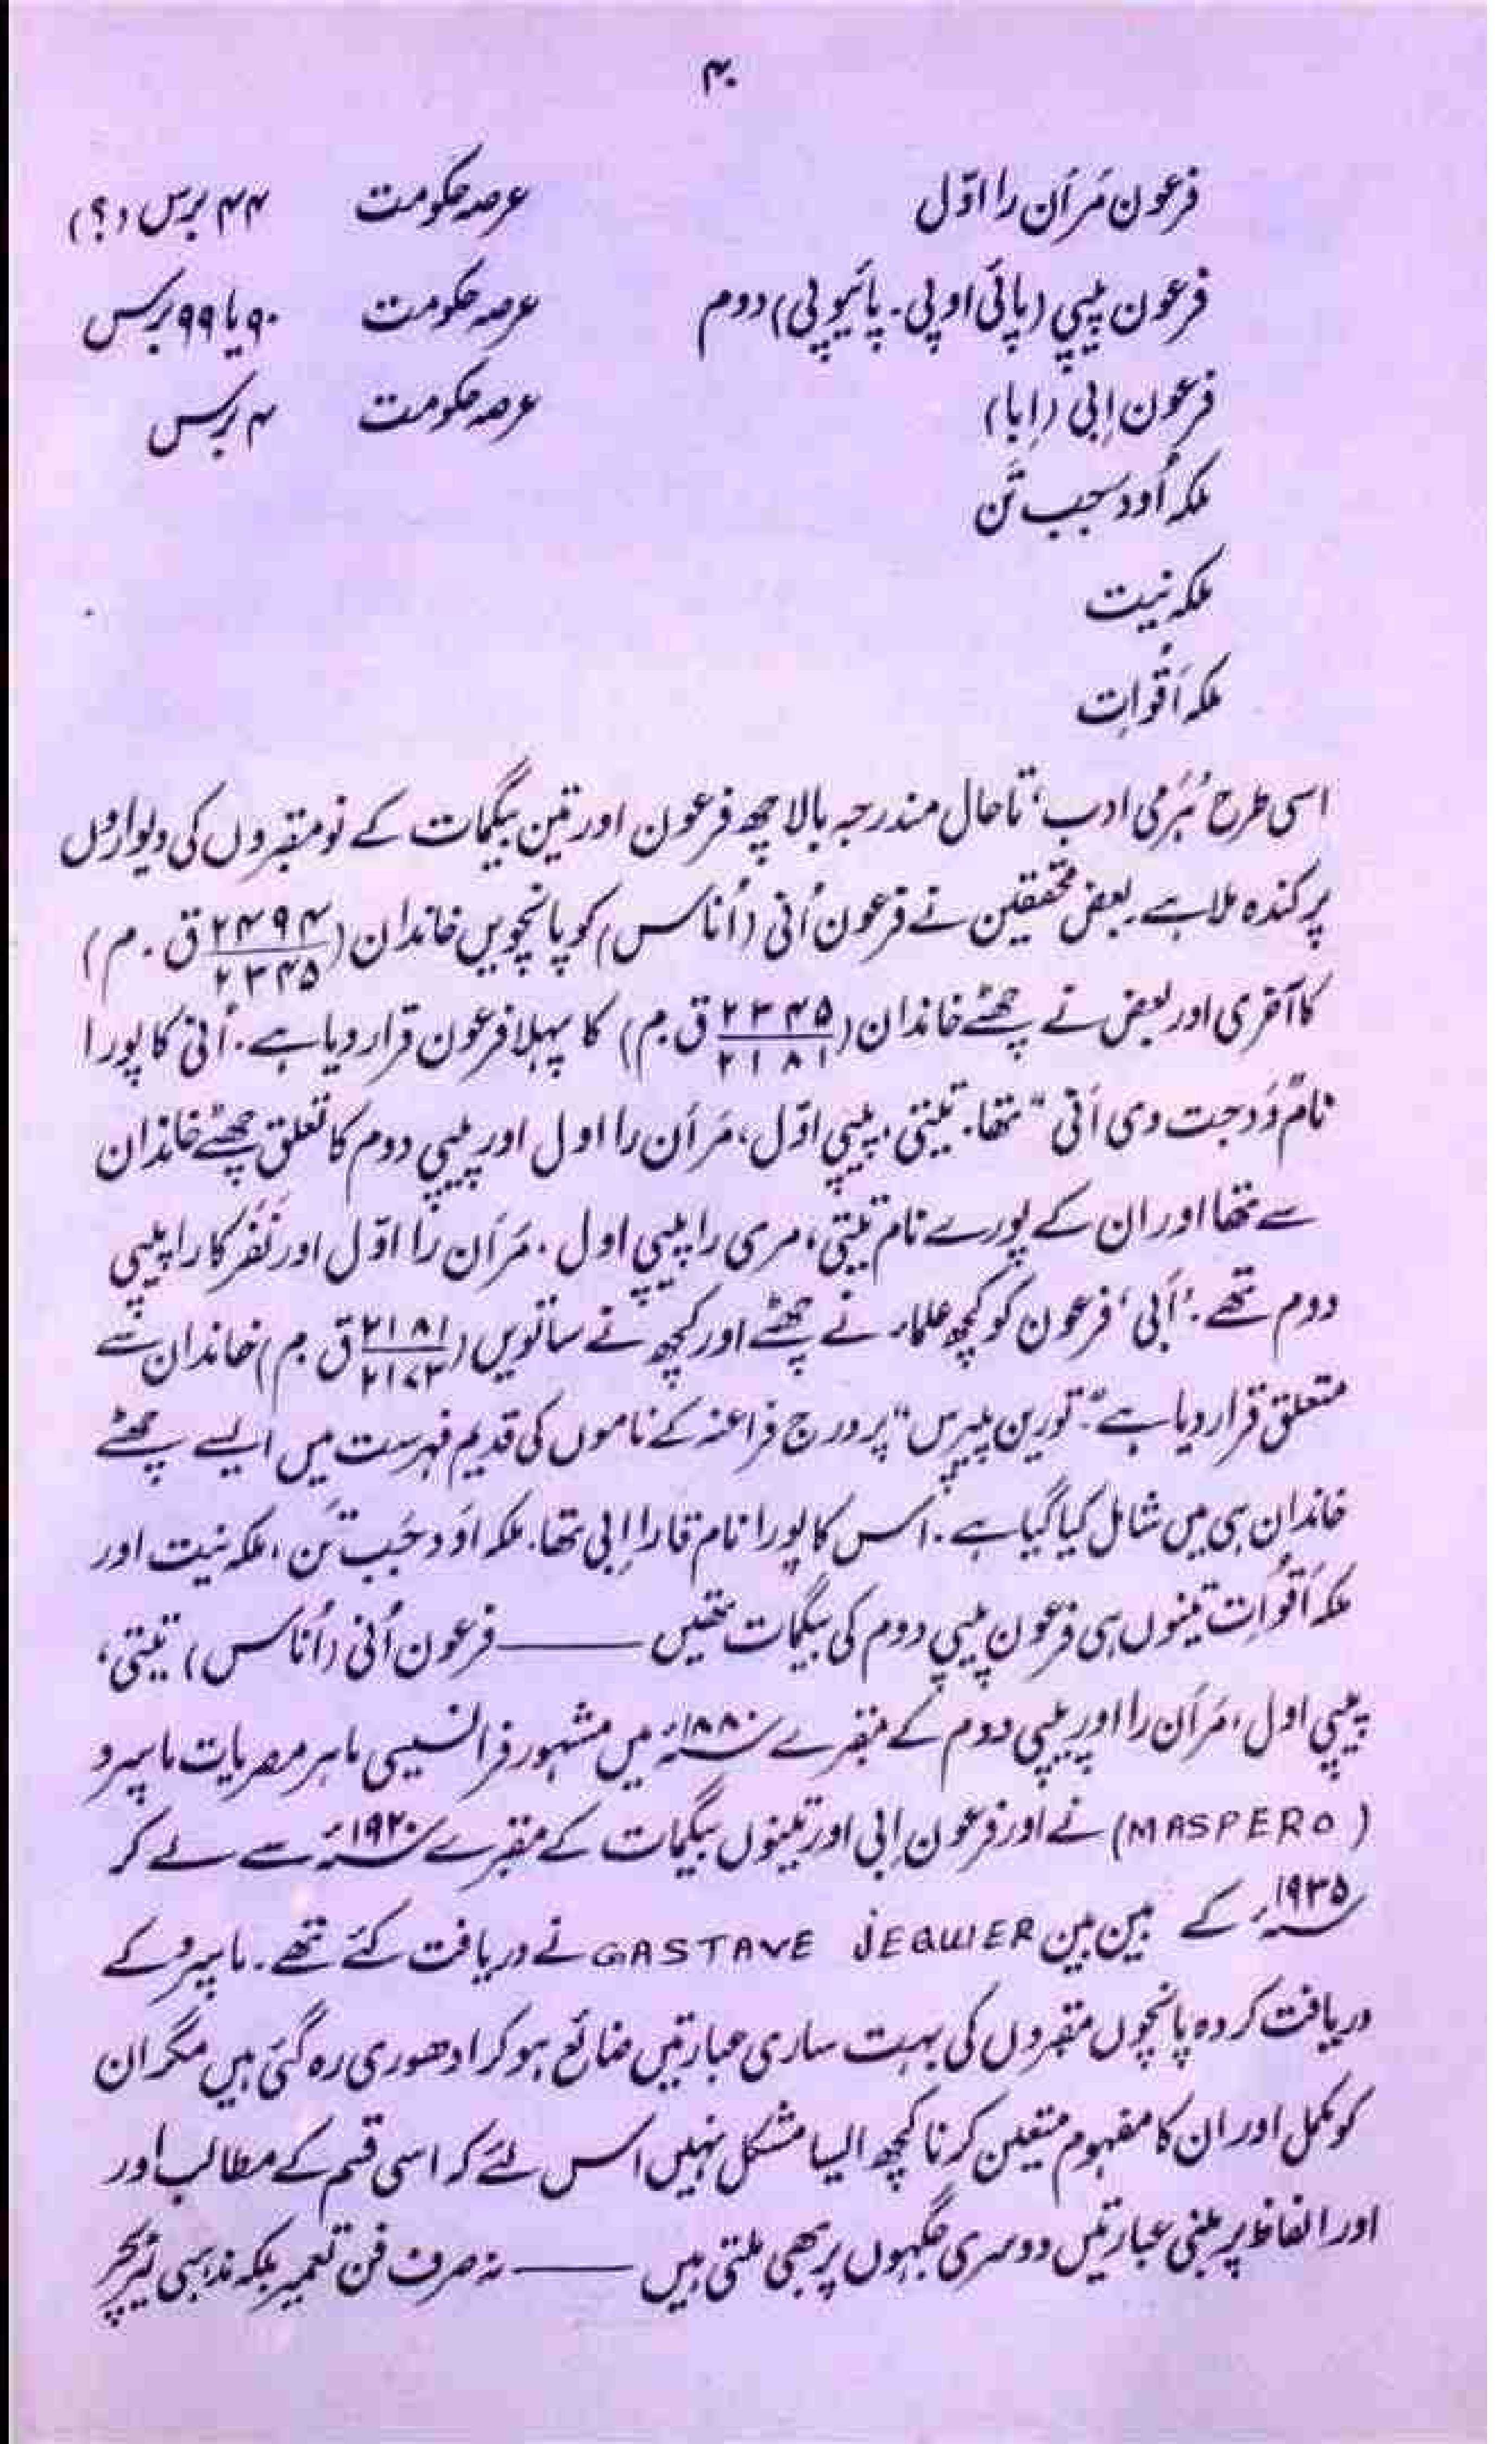 ۴۰
فرعون مَراَن را اوّل عرصہ حکومت ۴۴ برس (؟)
فرعون پیپی (پائی اوپی - پائیوپی) دوم عرصہ حکومت ۹۰ یا ۹۹ برس
فرعون اِبی (اِبا) عرصہ حکومت ۴ برس
ملکہ اُودسجیب تَن
ملکہ نیت
ملکہ اَقُواِت
اسی طرح ’ہُرمی ادب‘ تاحال مندرجہ بالا چھ فرعون اور تین بیگمات کے نو مقبروں کی دیواروں
پر کندہ ملا ہے۔ بعض محققین نے فرعون اُنی (اُناکس) کو پانچویں خاندان (۲۴۹۴/۲۳۴۵ ق۔م)
کا آخری اور بعض نے چھٹے خاندان (۲۳۴۵/۲۱۸۱ ق۔م) کا پہلا فرعون قرار دیا ہے۔ اُنی کا پورا
نام ”وَدجت دی اَنی“ تھا۔ تیتی، پیپی اوّل، مَراَن را اول اور پیپی دوم کا تعلق چھٹے خاندان
سے تھا اور ان کے پورے نام تیتی، مری را پیپی اول۔ مَراَن را اوّل اور نَفَر کا را پیپی
دوم تھے۔ ’اِبی‘ فرعون کو کچھ علماء نے چھٹے اور کچھ نے ساتویں (۲۱۸۱/۲۱۷۳ ق۔م) خاندان سے
متعلق قرار دیا ہے۔ ”تورین پیپرس“ پر درج فراعنہ کے ناموں کی قدیم فہرست میں ایسے چھٹے
خاندان ہی میں شامل کیا گیا ہے۔ اس کا پورا نام قارا اِبی تھا۔ ملکہ اَودجَبب تَن، ملکہ نیت اور
ملکہ اَقُواِت تینوں ہی فرعون پیپی دوم کی بیگمات تھیں ——— فرعون اُنی (اُناکس) تیتی،
پیپی اول، مَراَن را اور پیپی دوم کے مقبرے ۱۸۸۰ء میں مشہور فرانسیسی ماہر مصریات ماسپرو
(MASPERO) نے اور فرعون اِبی اور تینوں بیگمات کے مقبرے ۱۹۲۰ء سے لے کر
۱۹۳۵ء کے بین بین GASTAVE JEQUIER نے دریافت کئے تھے۔ ماسپرو کے
دریافت کردہ پانچوں مقبروں کی بہت ساری عبارتیں ضائع ہو کر ادھوری رہ گئی ہیں مگر ان
کو مکمل اور ان کا مفہوم متعین کرنا کچھ ایسا مشکل نہیں اس لئے کہ اسی قسم کے مطالب اور
اور الفاظ پر مبنی عبارتیں دوسری جگہوں پر بھی ملتی ہیں ——— نہ صرف فن تعمیر بلکہ مذہبی لٹریچر